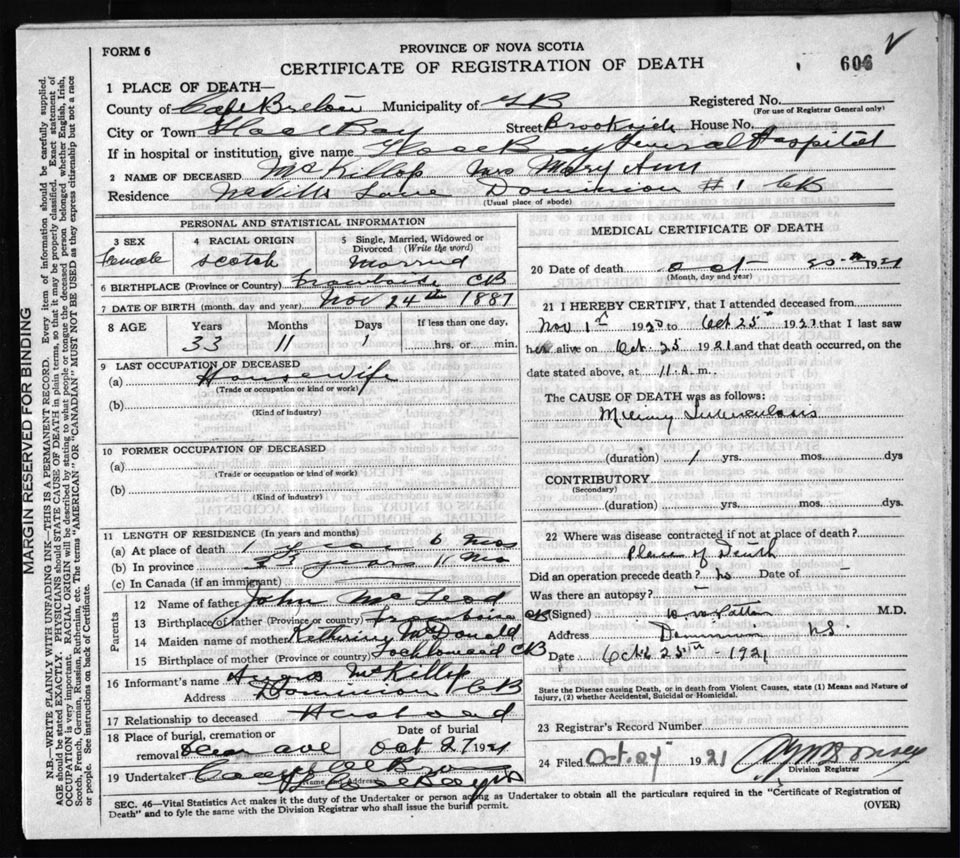 FORM 6
PROVINCE OF NOVA SCOTIA
CERTIFICATE OF REGISTRATION OF DEATH
606
1 PLACE OF DEATH—
County of Cape Breton Municipality of GB Registered No.
(For use of Registrar General only)
City or Town Glace Bay Street Brookside House No.
If in hospital or institution, give name Glace Bay General Hospital
2 NAME OF DECEASED McKillop Mrs Mary Ann
Residence Neville Lane Dominion #1 CB
(Usual place of abode)
PERSONAL AND STATISTICAL INFORMATION
3 SEX
Female
4 RACIAL ORIGIN
Scotch
5 Single, Married, Widowed or Divorced (Write the word)
Married
6 BIRTHPLACE (Province or Country) CB
7 DATE OF BIRTH (month, day and year) Nov 24th 1887
8 AGE Years Months Days If less than one day,
33 11 1 hrs. or min.
9 LAST OCCUPATION OF DECEASED
(a) Housewife
(Trade or occupation or kind or work)
(b)
(Kind of industry)
10 FORMER OCCUPATION OF DECEASED
(a)
(Trade or occupation or kind of work)
(b)
(Kind of industry)
11 LENGTH OF RESIDENCE (In years and months)
(a) At place of death 1 year 6 mos
(b) In province 33 years 11 Mo
(c) In Canada (if an immigrant)
Parents
12 Name of father John McLeod
13 Birthplace of father (Province or country) CB
14 Maiden name of mother McDonald
15 Birthplace of mother (Province or country) Loch Lomond CB
16 Informant's name Angus McKillop
Address Dominion CB
17 Relationship to deceased Husband
18 Place of burial, cremation or removal Date of burial
ave Oct 27 1921
19 Undertaker Bros
Name Address
Glace Bay NS
MEDICAL CERTIFICATE OF DEATH
20 Date of death Oct 25th 1921
(Month, day and year)
21 I HEREBY CERTIFY, that I attended deceased from
Nov 1st 1920 to Oct 25th 1921 that I last saw
her alive on Oct. 25 1921 and that death occurred, on the
date stated above, at 11 A.m.
The CAUSE OF DEATH was as follows:
Miliary Tuberculosis
(duration) 1 yrs. mos. dys
CONTRIBUTORY
(Secondary)
(duration) yrs. mos. dys.
22 Where was disease contracted if not at place of death?
Place of Death
Did an operation precede death? No Date of –
Was there an autopsy? –
(Signed) Patton M.D.
Address Dominion N.S.
Date Oct 25th - 1921
State the Disease causing Death, or in death from Violent Causes, state (1) Means and Nature of
Injury, (2) whether Accidental, Suicidal or Homicidal.
23 Registrar's Record Number
24 Filed Oct. 27 1921
Division Registrar
SEC. 46—Vital Statistics Act makes it the duty of the Undertaker or person acting as Undertaker to obtain all the particulars required in the "Certificate of Registration of
Death" and to fyle the same with the Division Registrar who shall issue the burial permit.
(OVER)
MARGIN RESERVED FOR BINDING
N.B.—WRITE PLAINLY WITH UNFADING INK—THIS IS A PERMANENT RECORD. Every item of information should be carefully supplied.
AGE should be stated EXACTLY. PHYSICIANS should STATE CAUSE OF DEATH in plain terms, so that it may be properly classified. Exact statement of
OCCUPATION is very important. RACIAL ORIGIN will be described by stating to what people or tongue the deceased person belonged whether English, Irish,
Scotch, French, German, Russian, Ruthenian, etc. The terms "AMERICAN" OR "CANADIAN" MUST NOT BE USED as they express citizenship but not a race
or people. See instructions on back of Certificate.